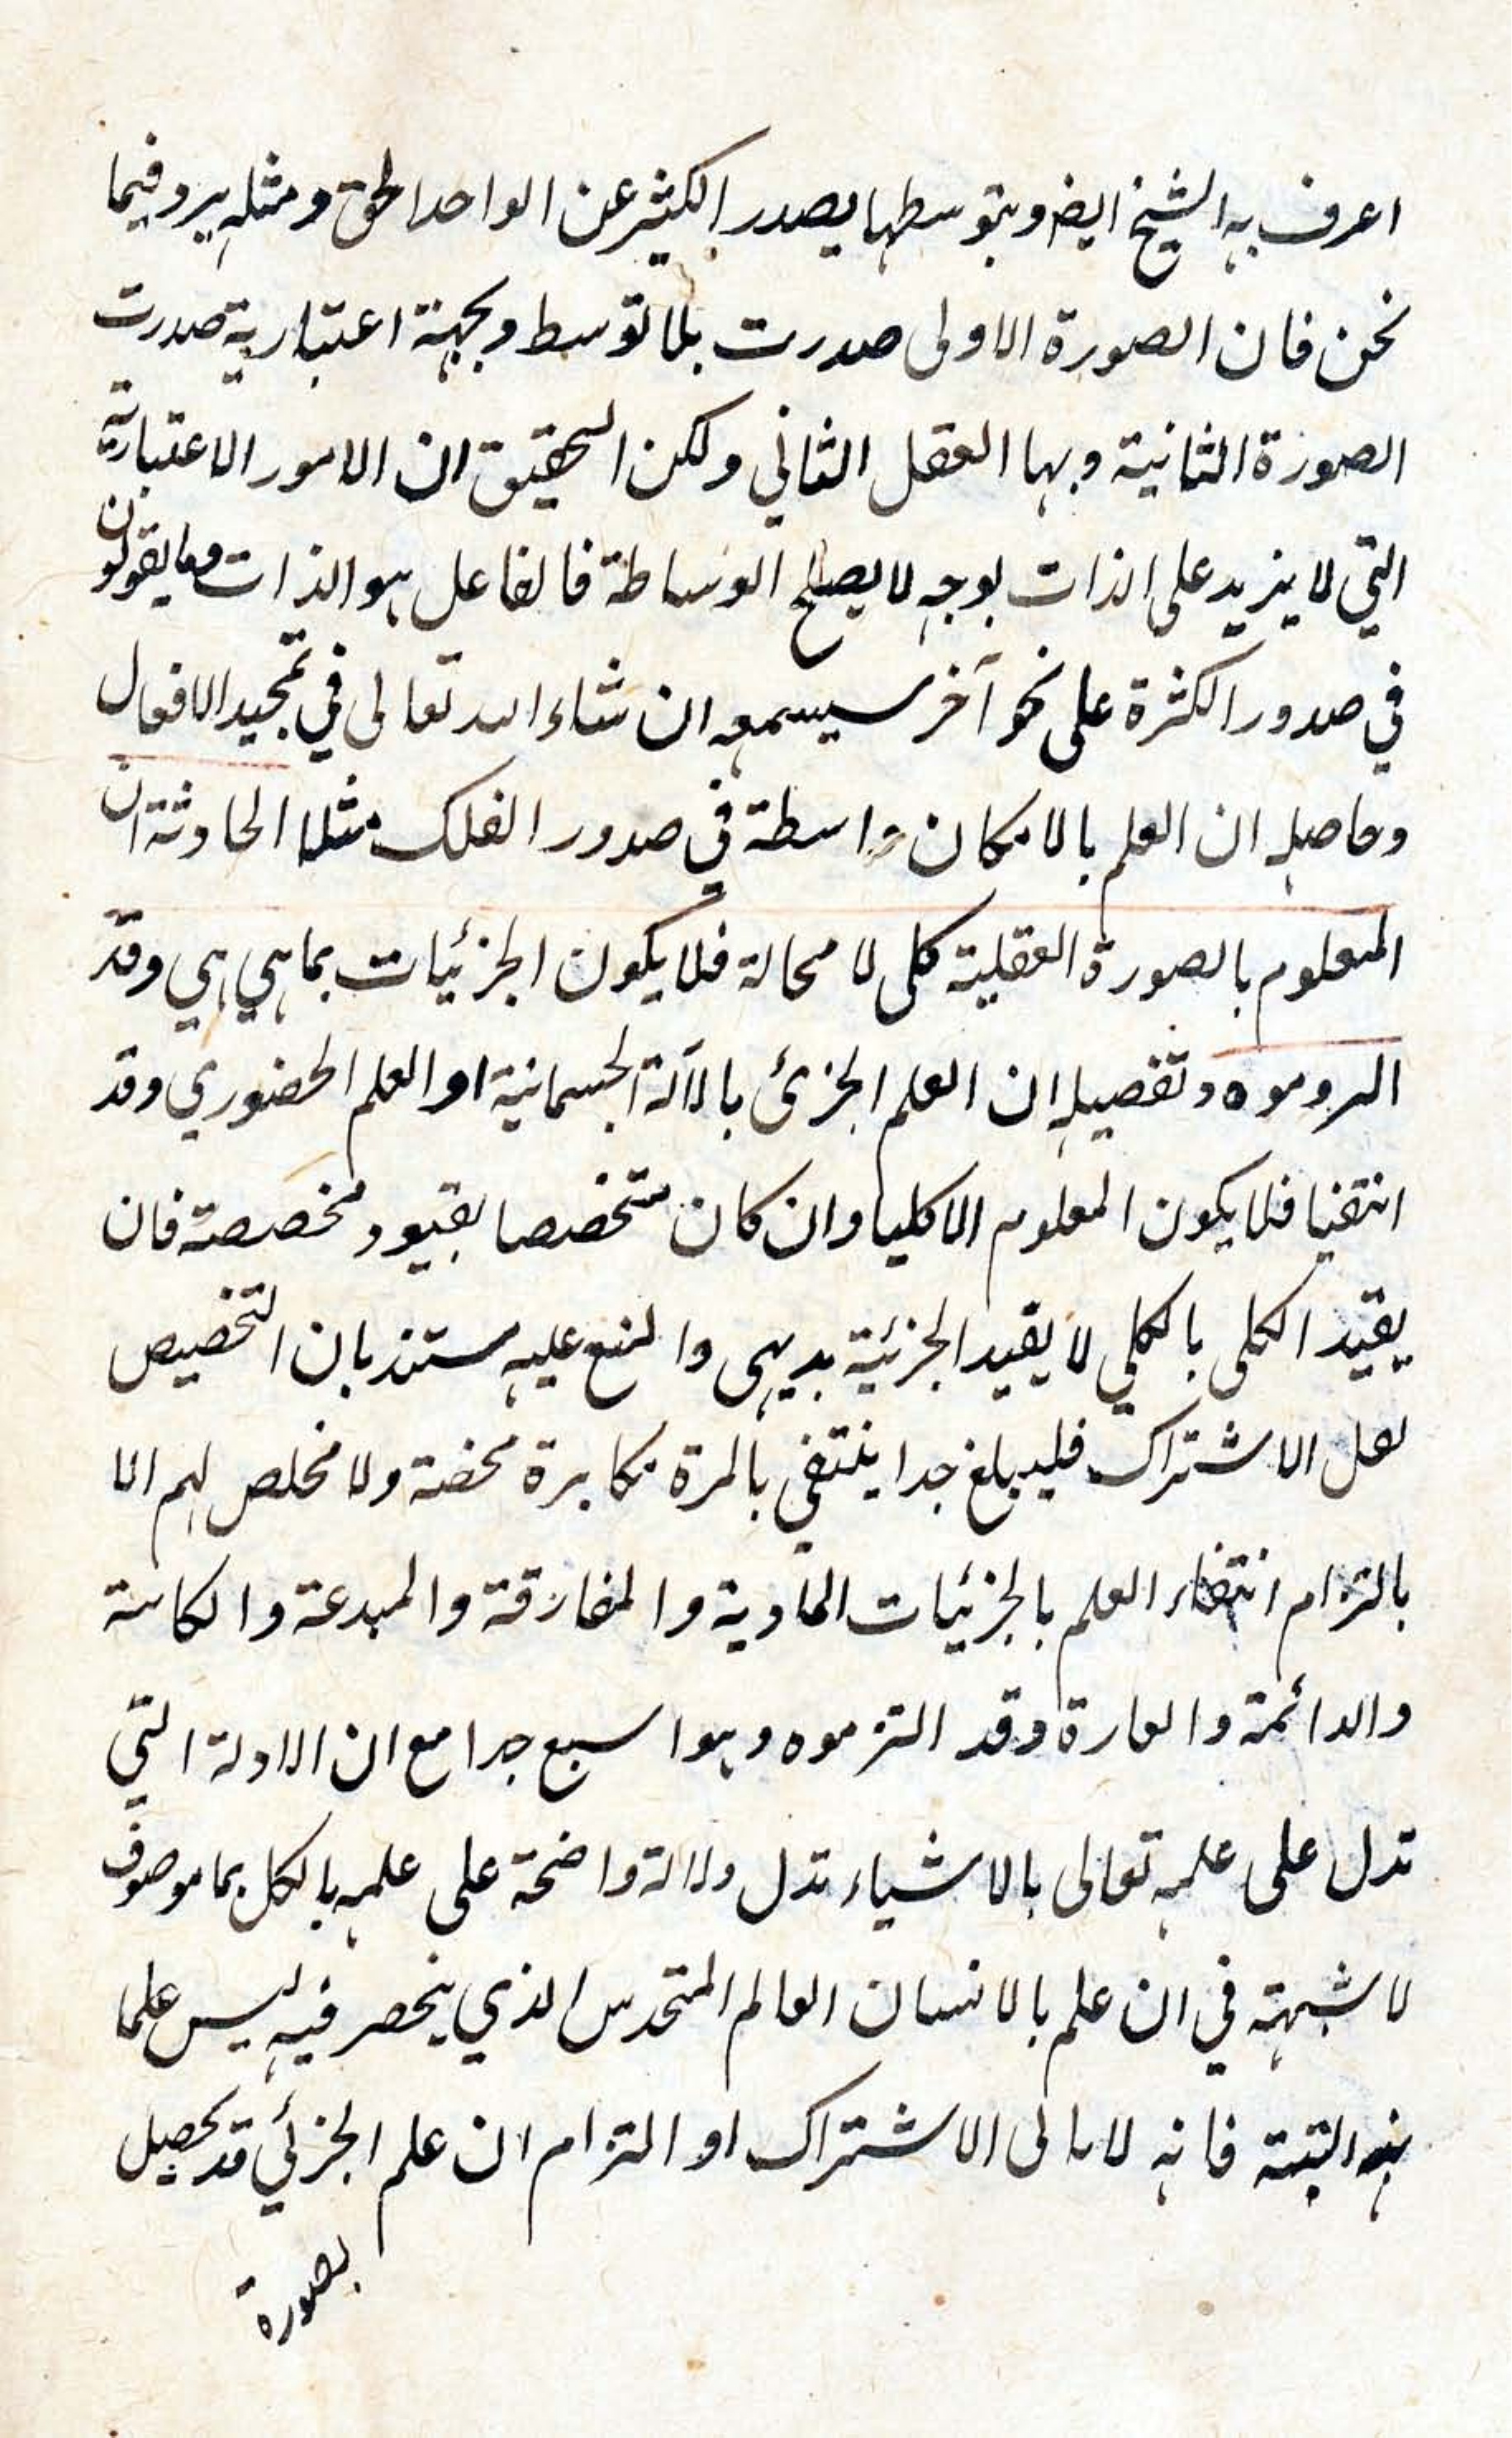 اعرف به الشيخ ايضا وبتوسطها يصدر الكثير عن الواحد الحق ومثله يرد فيما
نحن فان الصورة الاولى صدرت بلا توسط وبجهة اعتبارية صدرت
الصورة الثانية وبها العقل الثاني ولكن التحقيق ان الامور الاعتبارية
التي لا يزيد على الذات بوجه لا يصلح الوساطة فالفاعل هو الذات وما يقولون
في صدور الكثرة على نحو آخر سيسمعه ان شاء الله تعالى في تمجيد الافعال
وحاصله ان العلم بالامكان واسطة في صدور الفلك مثلا الحادثة ان
المعلوم بالصورة العقلية كلى لا محالة فلا يكون الجزئيات بما هي هي وقد
الزموه وتفصيله ان العلم الجزئ بالآلة الجسمانية او العلم الحضوري وقد
انتفيا فلا يكون المعلوم الا كليا وان كان متخصصا بقيود مخصصة فان
يقيد الكلى بالكلي لا يفيد الجزئية بديهى والمنع عليه مستند بان التخصيص
لعل الاشتراك فليبلغ حدا ينتفي بالمرة مكابرة محضة ولا مخلص لهم الا
بالتزام انتفاء العلم بالجزئيات المادية والمفارقة والمبدعة والكائنة
والدائمة والعارة وقد التزموه وهو اسبع جدا مع ان الادلة التي
تدل على علمه تعالى بالاشياء تدل دلالة واضحة على علمه بالكل بما موصوف
لا شبهة في ان علم بالانسان العالم المتحدس الذي ينحصر فيه ليس علما
به البتة فانه لا يابى الاشتراك او التزام ان علم الجزئي قد يحصل
بصورة